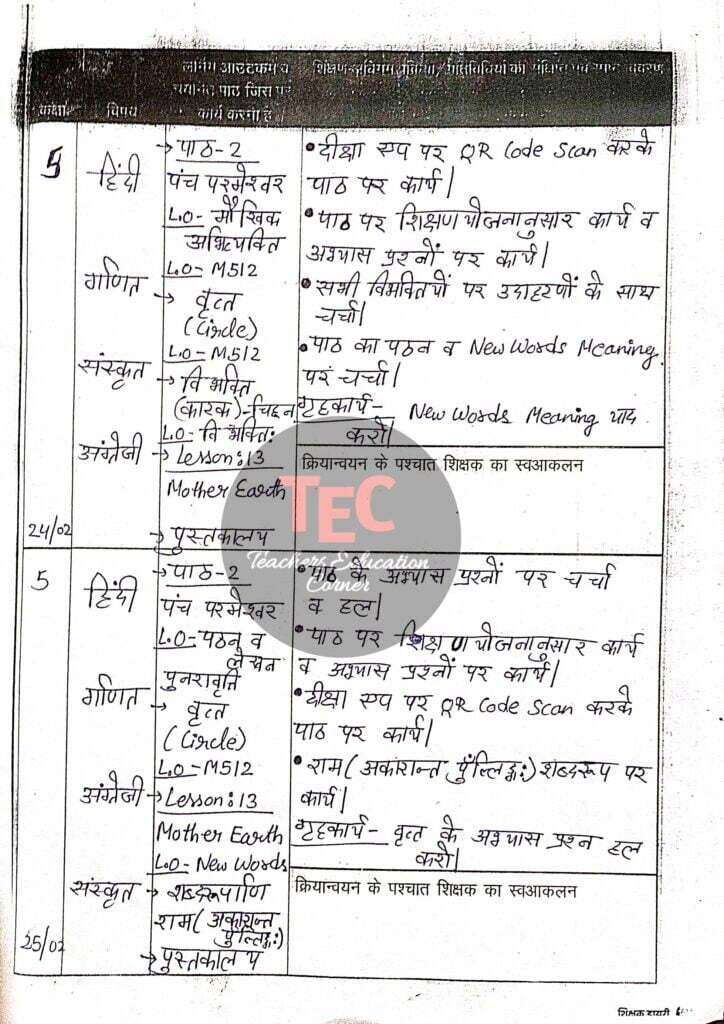 लर्निंग आउटकम व
चयनित पाठ जिस पर
कार्य करना है।
शिक्षण-अधिगम प्रक्रिया/गतिविधियों का
कक्षा
विषय
5
हिंदी
→ पाठ-2
पंच परमेश्वर
L.O- मौखिक
अभिव्यक्ति
गणित
L.O- M512
→ वृत्त
(Circle)
L.O- M512
संस्कृत
→ विभक्ति
(कारक)-चिह्न
L.O- विभक्ति:
अंग्रेजी
→ Lesson:13
Mother Earth
→ पुस्तकालय
24/02
• दीक्षा एप पर QR Code Scan करके
पाठ पर कार्य|
• पाठ पर शिक्षण योजनानुसार कार्य व
अभ्यास प्रश्नों पर कार्य|
• सभी विभक्तियों पर उदाहरणों के साथ
चर्चा|
• पाठ का पठन व New Words Meaning
पर चर्चा|
गृहकार्य- New Words Meaning याद
करो|
क्रियान्वयन के पश्चात शिक्षक का स्वआकलन
TEC
Teachers Education
Corner
5
हिंदी
→ पाठ-2
पंच परमेश्वर
L.O- पठन व
लेखन
पुनरावृत्ति
गणित
→ वृत्त
(Circle)
L.O- M512
अंग्रेजी
→ Lesson:13
Mother Earth
L.O- New Words
संस्कृत
→ शब्दरूपाणि
राम( अकारान्त
पुंल्लिङ्ग:)
→ पुस्तकालय
25/02
• पाठ के अभ्यास प्रश्नों पर चर्चा
व हल|
• पाठ पर शिक्षण योजनानुसार कार्य
व अभ्यास प्रश्नों पर कार्य|
• दीक्षा एप पर QR Code Scan करके
पाठ पर कार्य|
• राम( अकारान्त पुंल्लिङ्ग:) शब्दरूप पर
कार्य|
गृहकार्य- वृत्त के अभ्यास प्रश्न हल
करो|
क्रियान्वयन के पश्चात शिक्षक का स्वआकलन
शिक्षक डायरी